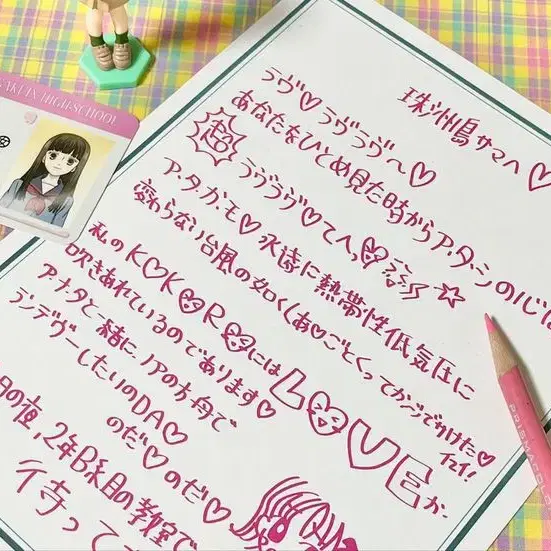 珠洲島サマへ♡
ラヴ♡ラヴラヴ〜♡
あなたをひとめ見た時からア・タ・シの心は
超ラヴラヴ♡てへ♡
ア・タ・カ・モ♡永遠に熱帯性低気圧に
変わらない台風の如く(あ♡ごとくってかごでかけた♡
イエイ!
私のK♡K♡R♡にはL♡VEが
吹きあれているのであります♡
アナタと一緒にノアの方舟で
ランデヴーしたいのDA♡
のだ♡のだ♡
の夜,2年B組の教室で
待って
HIGH-SCHOOL
PRISMACOLO